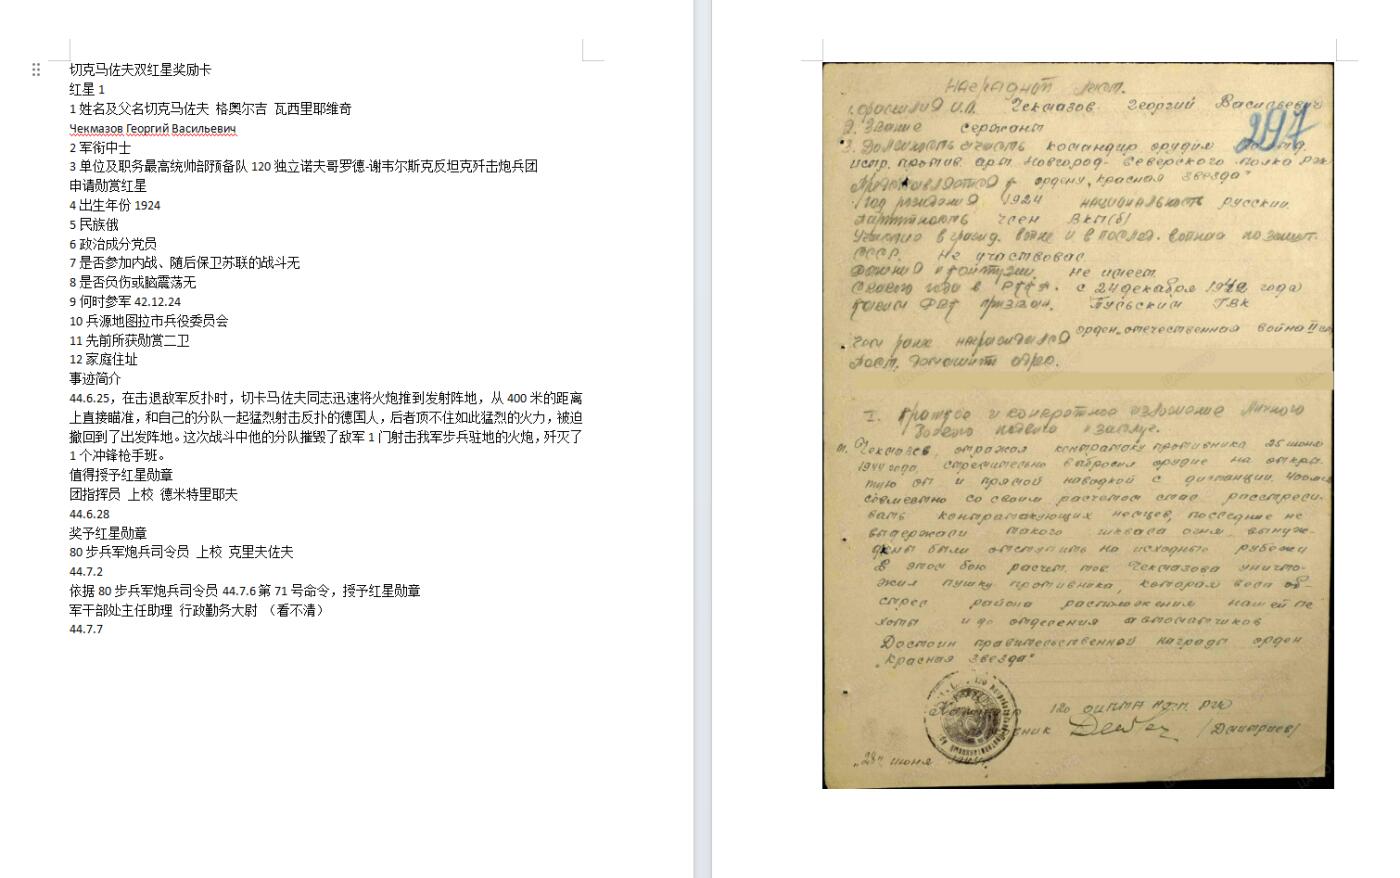 切克马佐夫双红星奖励卡
红星 1
1 姓名及父名切克马佐夫 格奥尔吉 瓦西里耶维奇
Чекмазов Георгий Васильевич
2 军衔中士
3 单位及职务最高统帅部预备队 120 独立诺夫哥罗德-谢韦尔斯克反坦克歼击炮兵团
申请勋赏红星
4 出生年份 1924
5 民族俄
6 政治成分党员
7 是否参加内战、随后保卫苏联的战斗无
8 是否负伤或脑震荡无
9 何时参军 42.12.24
10 兵源地图拉市兵役委员会
11 先前所获勋赏二卫
12 家庭住址
事迹简介
44.6.25，在击退敌军反扑时，切卡马佐夫同志迅速将火炮推到发射阵地，从 400 米的距离
上直接瞄准，和自己的分队一起猛烈射击反扑的德国人，后者顶不住如此猛烈的火力，被迫
撤回到了出发阵地。这次战斗中他的分队摧毁了敌军 1 门射击我军步兵驻地的火炮，歼灭了
1 个冲锋枪手班。
值得授予红星勋章
团指挥员 上校 德米特里耶夫
44.6.28
奖予红星勋章
80 步兵军炮兵司令员 上校 克里夫佐夫
44.7.2
依据 80 步兵军炮兵司令员 44.7.6 第 71 号命令，授予红星勋章
军干部处主任助理 行政勤务大尉 （看不清）
44.7.7
Наградной лист.
1. Фамилия И.О. Чекмазов Георгий Васильевич
297
2. Звание сержант
3. Должность и часть командир орудия
истр. против. арт. Новгород-Северского полка РГК
Представляется к ордену „Красная Звезда"
Год рождения 1924 национальность русский
Партийность член ВКП(б)
Участие в гражд. войне и в послед. войнах по защит.
СССР. Не участвовал
Ранения и контузии. Не имеет
С какого года в РККА. с 24 декабря 1942 года
Каким РВК призван. Тульским ГВК
орден „отечественная война II
Чем ранее награждался
Пост. домашний адрес.
I. Краткое и конкретное изложение личного
боевого подвига и заслуг.
т. Чекмазов, отражая контратаку противника 25 июня
1944 года, стремительно выбросил орудие на откры-
тую оп и прямой наводкой с дистанции 400м
совместно со своим расчетом стал расстрели-
вать контратакующих немцев, последние не
выдержали такого шквала огня, вынуж-
дены были отступить на исходные рубежи
В этом бою расчет тов. Чекмазова уничто-
жил пушку противника, которая вела об-
стрел района расположения нашей пе
хоты и до отделения автоматчиков
Достоин правительственной награды орден
„Красная звезда"
120 оиптА н.с.п. РГК
/Дмитриев/
„28" июня